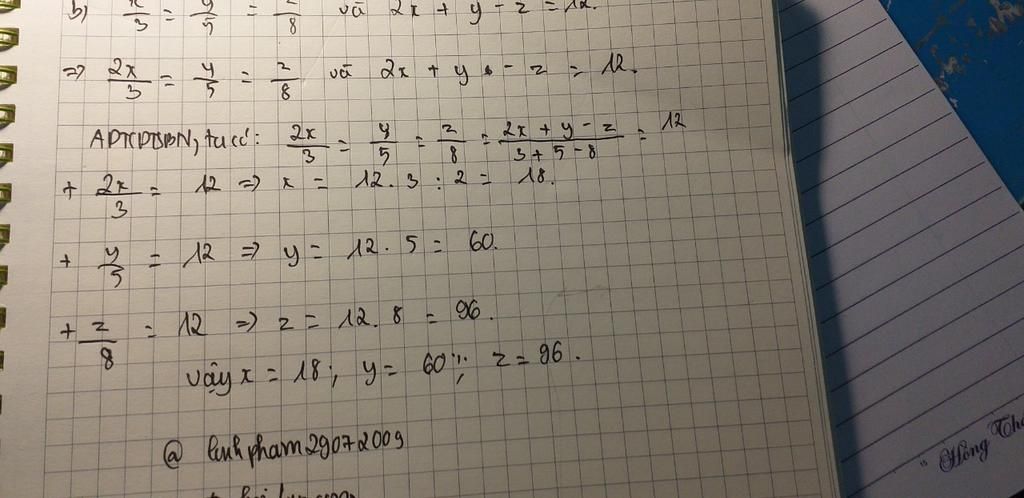 b) x/3 = y/5 = z/8 và 2x + y - z = 12.
=> 2x/3 = y/5 = z/8 và 2x + y - z = 12.
ADTCDTSBN, ta có: 2x/3 = y/5 = z/8 = (2x + y - z)/(3 + 5 - 8) = 12
+ 2x/3 = 12 => x = 12 . 3 : 2 = 18.
+ y/5 = 12 => y = 12 . 5 = 60.
+ z/8 = 12 => z = 12 . 8 = 96.
vậy x = 18; y = 60; z = 96.
@ linhpham29072009
Hồng